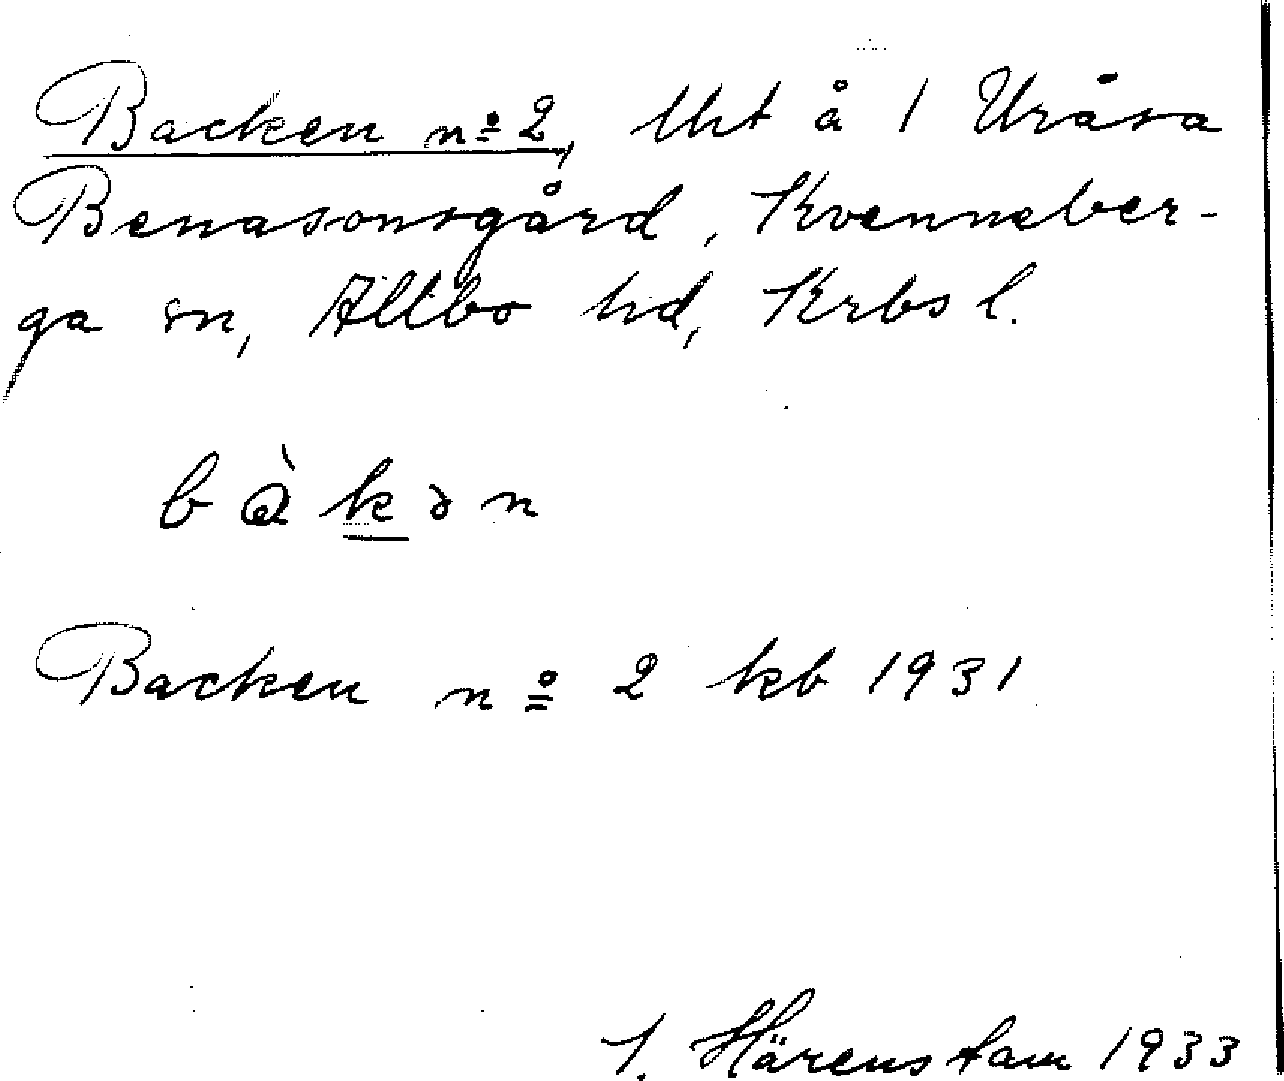 Backen nº 2, lht å 1 Uråsa
Benasonsgård, Kvenneber-
ga sn, Allbo hd, Krbs l.
bàkən
Backen nº 2 kb 1931
J. Härenstam 1933